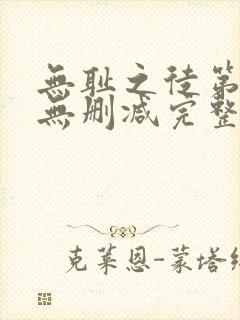 無耻之徒第
無删减完整
克莱恩-蒙塔